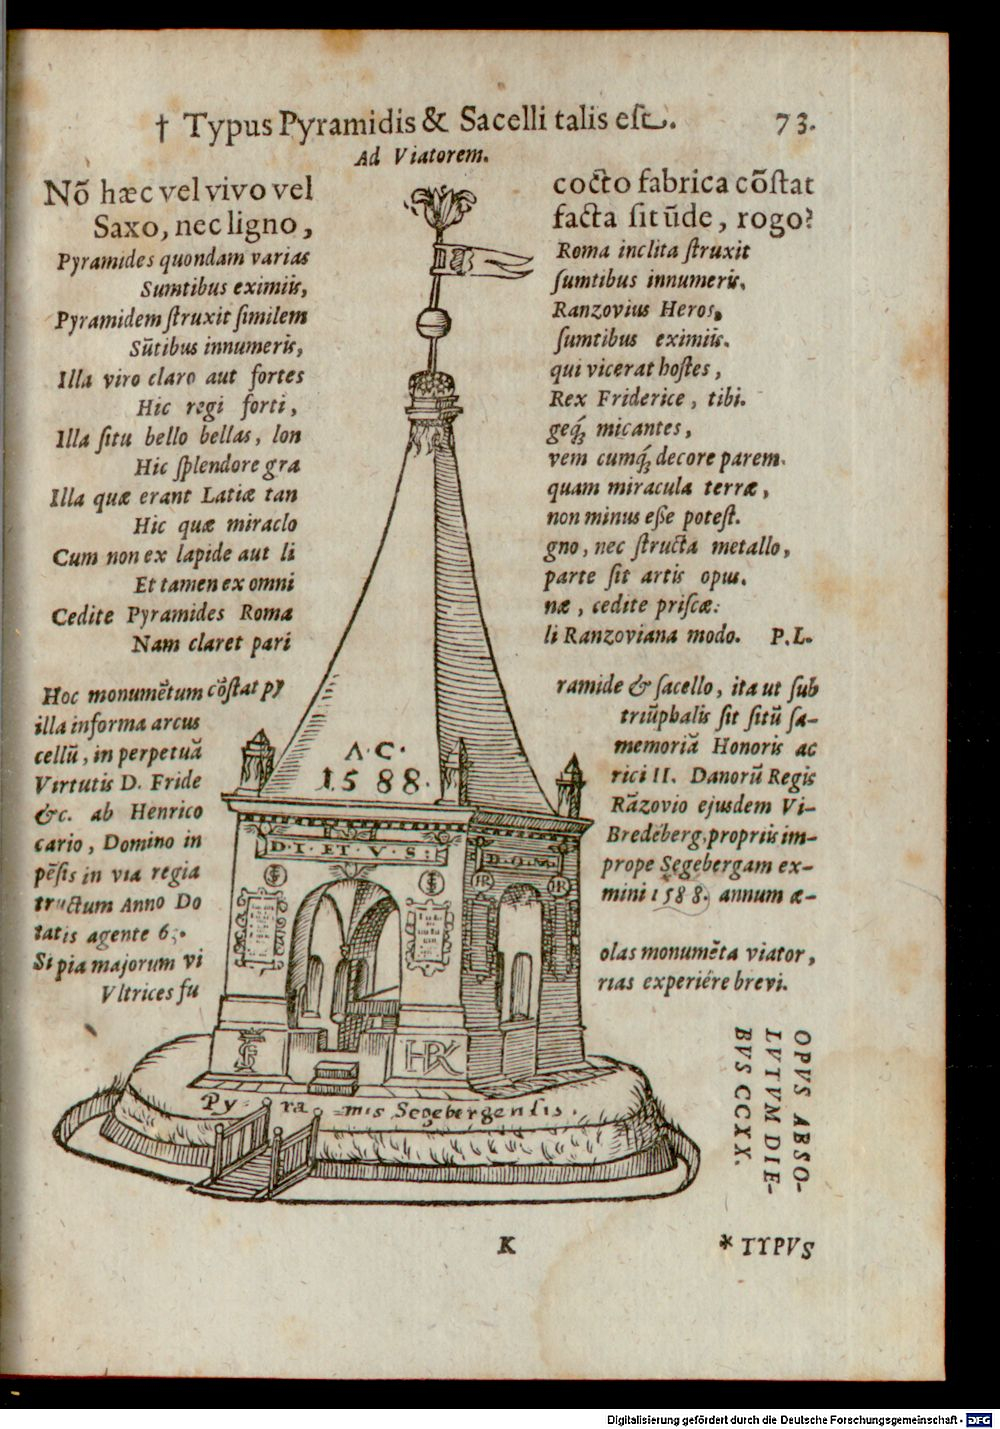 † Typus Pyramidis & Sacelli talis eſt. 73.
Ad Viatorem.
Nõ hæc vel vivo vel cocto fabrica cõſtat
Saxo, nec ligno, facta ſit ũde, rogo?
Pyramides quondam varias Roma inclita ſtruxit
Sumtibus eximiis, ſumtibus innumeris.
Pyramidem ſtruxit ſimilem Ranzovius Heros,
Sũtibus innumeris, ſumtibus eximiis.
Illa viro claro aut fortes qui vicerat hoſtes,
Hic regi forti, Rex Friderice, tibi.
Illa ſitu bello bellas, lon geq́; micantes,
Hic ſplendore gra vem cumq́; decore parem.
Illa quæ erant Latiæ tan quam miracula terræ,
Hic quæ miraclo non minus eſſe poteſt.
Cum non ex lapide aut li gno, nec ſtructa metallo,
Et tamen ex omni parte ſit artis opus.
Cedite Pyramides Roma næ, cedite priſcæ:
Nam claret pari li Ranzoviana modo. P.L.
Hoc monumẽtum cõſtat py ramide & ſacello, ita ut ſub
illa in forma arcus triũphalis ſit ſitũ ſa-
cellũ, in perpetuã memoriã Honoris ac
Virtutis D. Fride rici II. Danorũ Regis
&c. ab Henrico Rãzovio ejusdem Vi-
cario, Domino in Bredẽberg, propriis im-
pẽſis in via regia prope Segebergam ex-
tructum Anno Do mini 1588. annum æ-
tatis agente 63.
Si pia majorum vi olas monumẽta viator,
Vltrices fu rias experiére brevi.
A·C·
1588.
D·I·ET·V·S:
D·O·M·
HR
HR
HRK
Py- ra -mis Segebergenſis.
OPVS ABSO-
LVTVM DIE-
BVS CCXX.
K * TYPVS
Digitalisierung gefördert durch die Deutsche Forschungsgemeinschaft - DFG